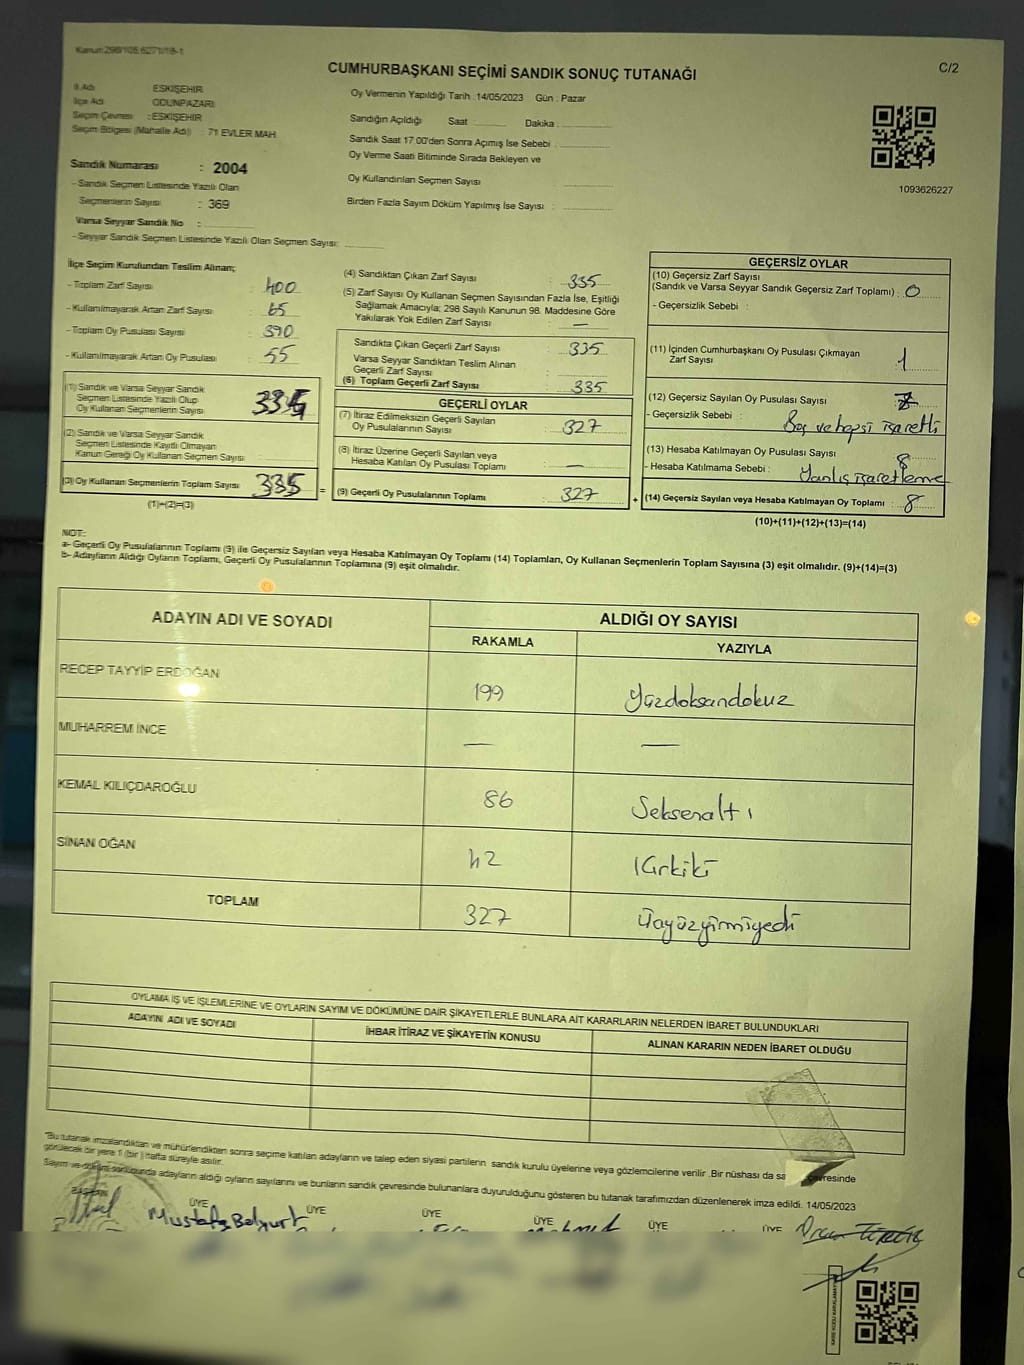 Kanun:298/105.6271/18-1
C/2
CUMHURBAŞKANI SEÇİMİ SANDIK SONUÇ TUTANAĞI
İl Adı ESKİŞEHİR
İlçe Adı ODUNPAZARI
Seçim Çevresi : ESKİŞEHİR
Seçim Bölgesi (Mahalle Adı) : 71 EVLER MAH.
Oy Vermenin Yapıldığı Tarih : 14/05/2023 Gün : Pazar
Sandığın Açıldığı Saat Dakika
Sandık Saat 17:00'den Sonra Açılmış İse Sebebi :
Oy Verme Saati Bitiminde Sırada Bekleyen ve
Oy Kullandırılan Seçmen Sayısı
Birden Fazla Sayım Döküm Yapılmış İse Sayısı :
1093626227
Sandık Numarası : 2004
- Sandık Seçmen Listesinde Yazılı Olan
Seçmenlerin Sayısı : 369
Varsa Seyyar Sandık No :
- Seyyar Sandık Seçmen Listesinde Yazılı Olan Seçmen Sayısı:
İlçe Seçim Kurulundan Teslim Alınan;
- Toplam Zarf Sayısı : 400
- Kullanılmayarak Artan Zarf Sayısı : 65
- Toplam Oy Pusulası Sayısı : 390
- Kullanılmayarak Artan Oy Pusulası : 55
(1) Sandık ve Varsa Seyyar Sandık
Seçmen Listesinde Yazılı Olup
Oy Kullanan Seçmenlerin Sayısı : 335
(2) Sandık ve Varsa Seyyar Sandık
Seçmen Listesinde Kayıtlı Olmayan
Kanun Gereği Oy Kullanan Seçmen Sayısı :
(3) Oy Kullanan Seçmenlerin Toplam Sayısı : 335 =
(1)+(2)=(3)
(4) Sandıktan Çıkan Zarf Sayısı : 335
(5) Zarf Sayısı Oy Kullanan Seçmen Sayısından Fazla İse, Eşitliği
Sağlamak Amacıyla; 298 Sayılı Kanunun 98. Maddesine Göre
Yakılarak Yok Edilen Zarf Sayısı : —
Sandıkta Çıkan Geçerli Zarf Sayısı : 335
Varsa Seyyar Sandıktan Teslim Alınan
Geçerli Zarf Sayısı :
(6) Toplam Geçerli Zarf Sayısı : 335
GEÇERLİ OYLAR
(7) İtiraz Edilmeksizin Geçerli Sayılan
Oy Pusulalarının Sayısı : 327
(8) İtiraz Üzerine Geçerli Sayılan veya
Hesaba Katılan Oy Pusulası Toplamı : —
(9) Geçerli Oy Pusulalarının Toplamı : 327 +
GEÇERSİZ OYLAR
(10) Geçersiz Zarf Sayısı
(Sandık ve Varsa Seyyar Sandık Geçersiz Zarf Toplamı) : 0
- Geçersizlik Sebebi :
(11) İçinden Cumhurbaşkanı Oy Pusulası Çıkmayan
Zarf Sayısı : 1
(12) Geçersiz Sayılan Oy Pusulası Sayısı :
- Geçersizlik Sebebi : Boş ve hepsi işaretli
(13) Hesaba Katılmayan Oy Pusulası Sayısı : 8
- Hesaba Katılmama Sebebi : Yanlış işaretleme
(14) Geçersiz Sayılan veya Hesaba Katılmayan Oy Toplamı : 8
(10)+(11)+(12)+(13)=(14)
NOT:
a- Geçerli Oy Pusulalarının Toplamı (9) ile Geçersiz Sayılan veya Hesaba Katılmayan Oy Toplamı (14) Toplamları, Oy Kullanan Seçmenlerin Toplam Sayısına (3) eşit olmalıdır. (9)+(14)=(3)
b- Adayların Aldığı Oyların Toplamı, Geçerli Oy Pusulalarının Toplamına (9) eşit olmalıdır.
ADAYIN ADI VE SOYADI
ALDIĞI OY SAYISI
RAKAMLA YAZIYLA
RECEP TAYYİP ERDOĞAN 199 Yüzdoksandokuz
MUHARREM İNCE — —
KEMAL KILIÇDAROĞLU 86 Seksenaltı
SİNAN OĞAN 42 Kırkiki
TOPLAM 327 Üçyüzyirmiyedi
OYLAMA İŞ VE İŞLEMLERİNE VE OYLARIN SAYIM VE DÖKÜMÜNE DAİR ŞİKAYETLERLE BUNLARA AİT KARARLARIN NELERDEN İBARET BULUNDUKLARI
ADAYIN ADI VE SOYADI İHBAR İTİRAZ VE ŞİKAYETİN KONUSU ALINAN KARARIN NEDEN İBARET OLDUĞU
"Bu tutanak imzalandıktan ve mühürlendikten sonra seçime katılan adayların ve talep eden siyasi partilerin sandık kurulu üyelerine veya gözlemcilerine verilir .Bir nüshası da sa çevresinde
görülecek bir yere 1 (bir) hafta süreyle asılır.
Sayım ve döküm sonucunda adayların aldığı oyların sayılarını ve bunların sandık çevresinde bulunanlara duyurulduğunu gösteren bu tutanak tarafımızdan düzenlenerek imza edildi. 14/05/2023
BAŞKAN ÜYE ÜYE ÜYE ÜYE ÜYE ÜYE
Mustafa Belyurt